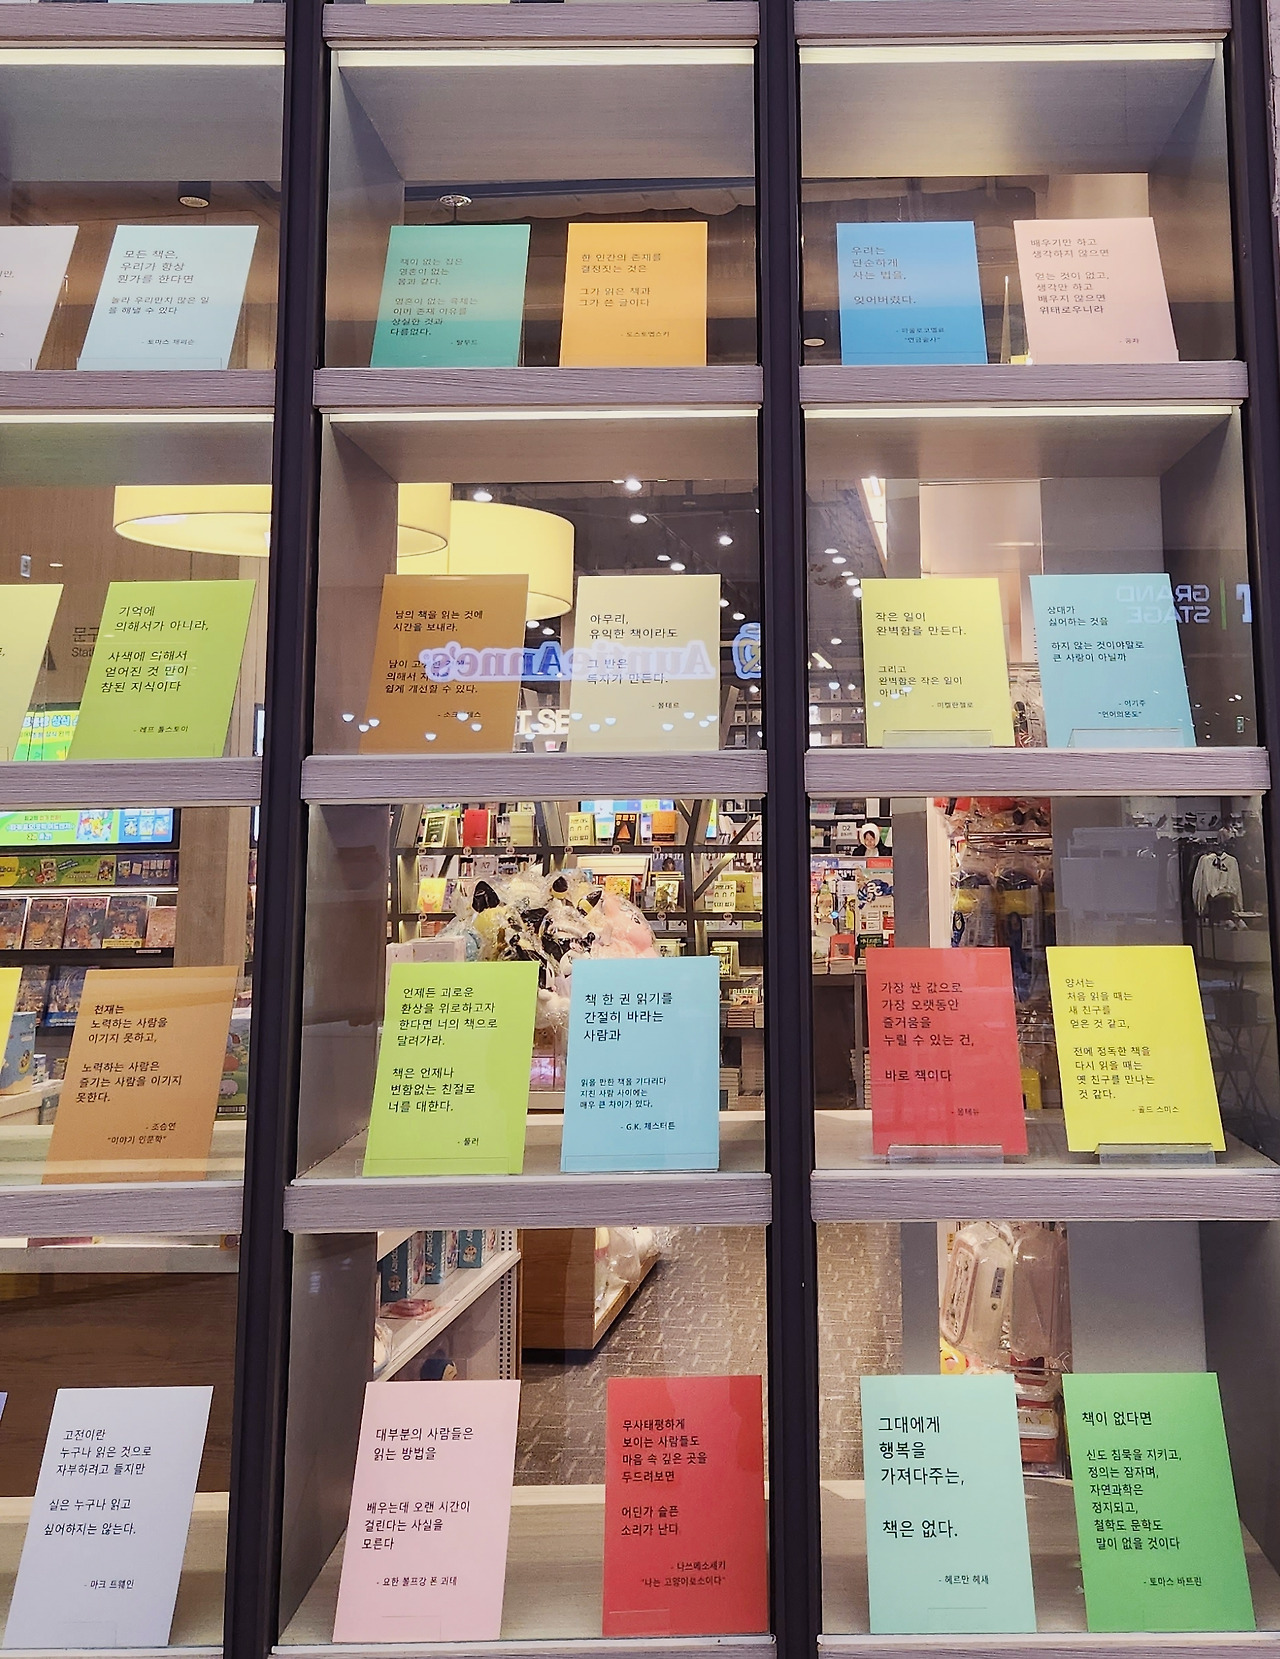 모든 책은,
우리가 항상
뭔가를 한다면
놀라 우리만지 않은 일
을 해낼 수 있다
- 토마스 제퍼슨
책이 없는 집은
영혼이 없는
몸과 같다.
영혼이 없는 육체는
이미 존재 이유를
상실한 것과
다름없다.
- 탈무드
한 인간의 존재를
결정짓는 것은
그가 읽은 책과
그가 쓴 글이다
- 도스토옙스키
우리는
단순하게
사는 법을,
잊어버렸다.
- 파울로코엘료
"연금술사"
배우기만 하고
생각하지 않으면
얻는 것이 없고,
생각만 하고
배우지 않으면
위태로우니라
- 공자
기억에
의해서가 아니라,
사색에 의해서
얻어진 것 만이
참된 지식이다
- 레프 톨스토이
남의 책을 읽는 것에
시간을 보내라.
남이 고
의해서
쉽게 개선할 수 있다.
아무리,
유익한 책이라도
그 반은
독자가 만든다.
- 볼테르
Auntie Anne's
작은 일이
완벽함을 만든다.
그리고
완벽함은 작은 일이
아니다
- 미켈란젤로
상대가
싫어하는 것을
하지 않는 것이야말로
큰 사랑이 아닐까
- 이기주
"언어의온도"
GRAND
STAGE
천재는
노력하는 사람을
이기지 못하고,
노력하는 사람은
즐기는 사람을 이기지
못한다.
- 조승연
"이야기 인문학"
언제든 괴로운
환상을 위로하고자
한다면 너의 책으로
달려가라.
책은 언제나
변함없는 친절로
너를 대한다.
- 풀러
책 한 권 읽기를
간절히 바라는
사람과
읽을 만한 책을 기다리다
지친 사람 사이에는
매우 큰 차이가 있다.
- G.K. 체스터튼
가장 싼 값으로
가장 오랫동안
즐거움을
누릴 수 있는 건,
바로 책이다
- 몽테뉴
양서는
처음 읽을 때는
새 친구를
얻은 것 같고,
전에 정독한 책을
다시 읽을 때는
옛 친구를 만나는
것 같다.
- 골드 스미스
고전이란
누구나 읽은 것으로
자부하려고 들지만
실은 누구나 읽고
싶어하지는 않는다.
- 마크 트웨인
대부분의 사람들은
읽는 방법을
배우는데 오랜 시간이
걸린다는 사실을
모른다
- 요한 볼프강 폰 괴테
무사태평하게
보이는 사람들도
마음 속 깊은 곳을
두드려보면
어딘가 슬픈
소리가 난다
- 나쓰메소세키
"나는 고양이로소이다"
그대에게
행복을
가져다주는,
책은 없다.
- 헤르만 헤세
책이 없다면
신도 침묵을 지키고,
정의는 잠자며,
자연과학은
정지되고,
철학도 문학도
말이 없을 것이다
- 토마스 바트린